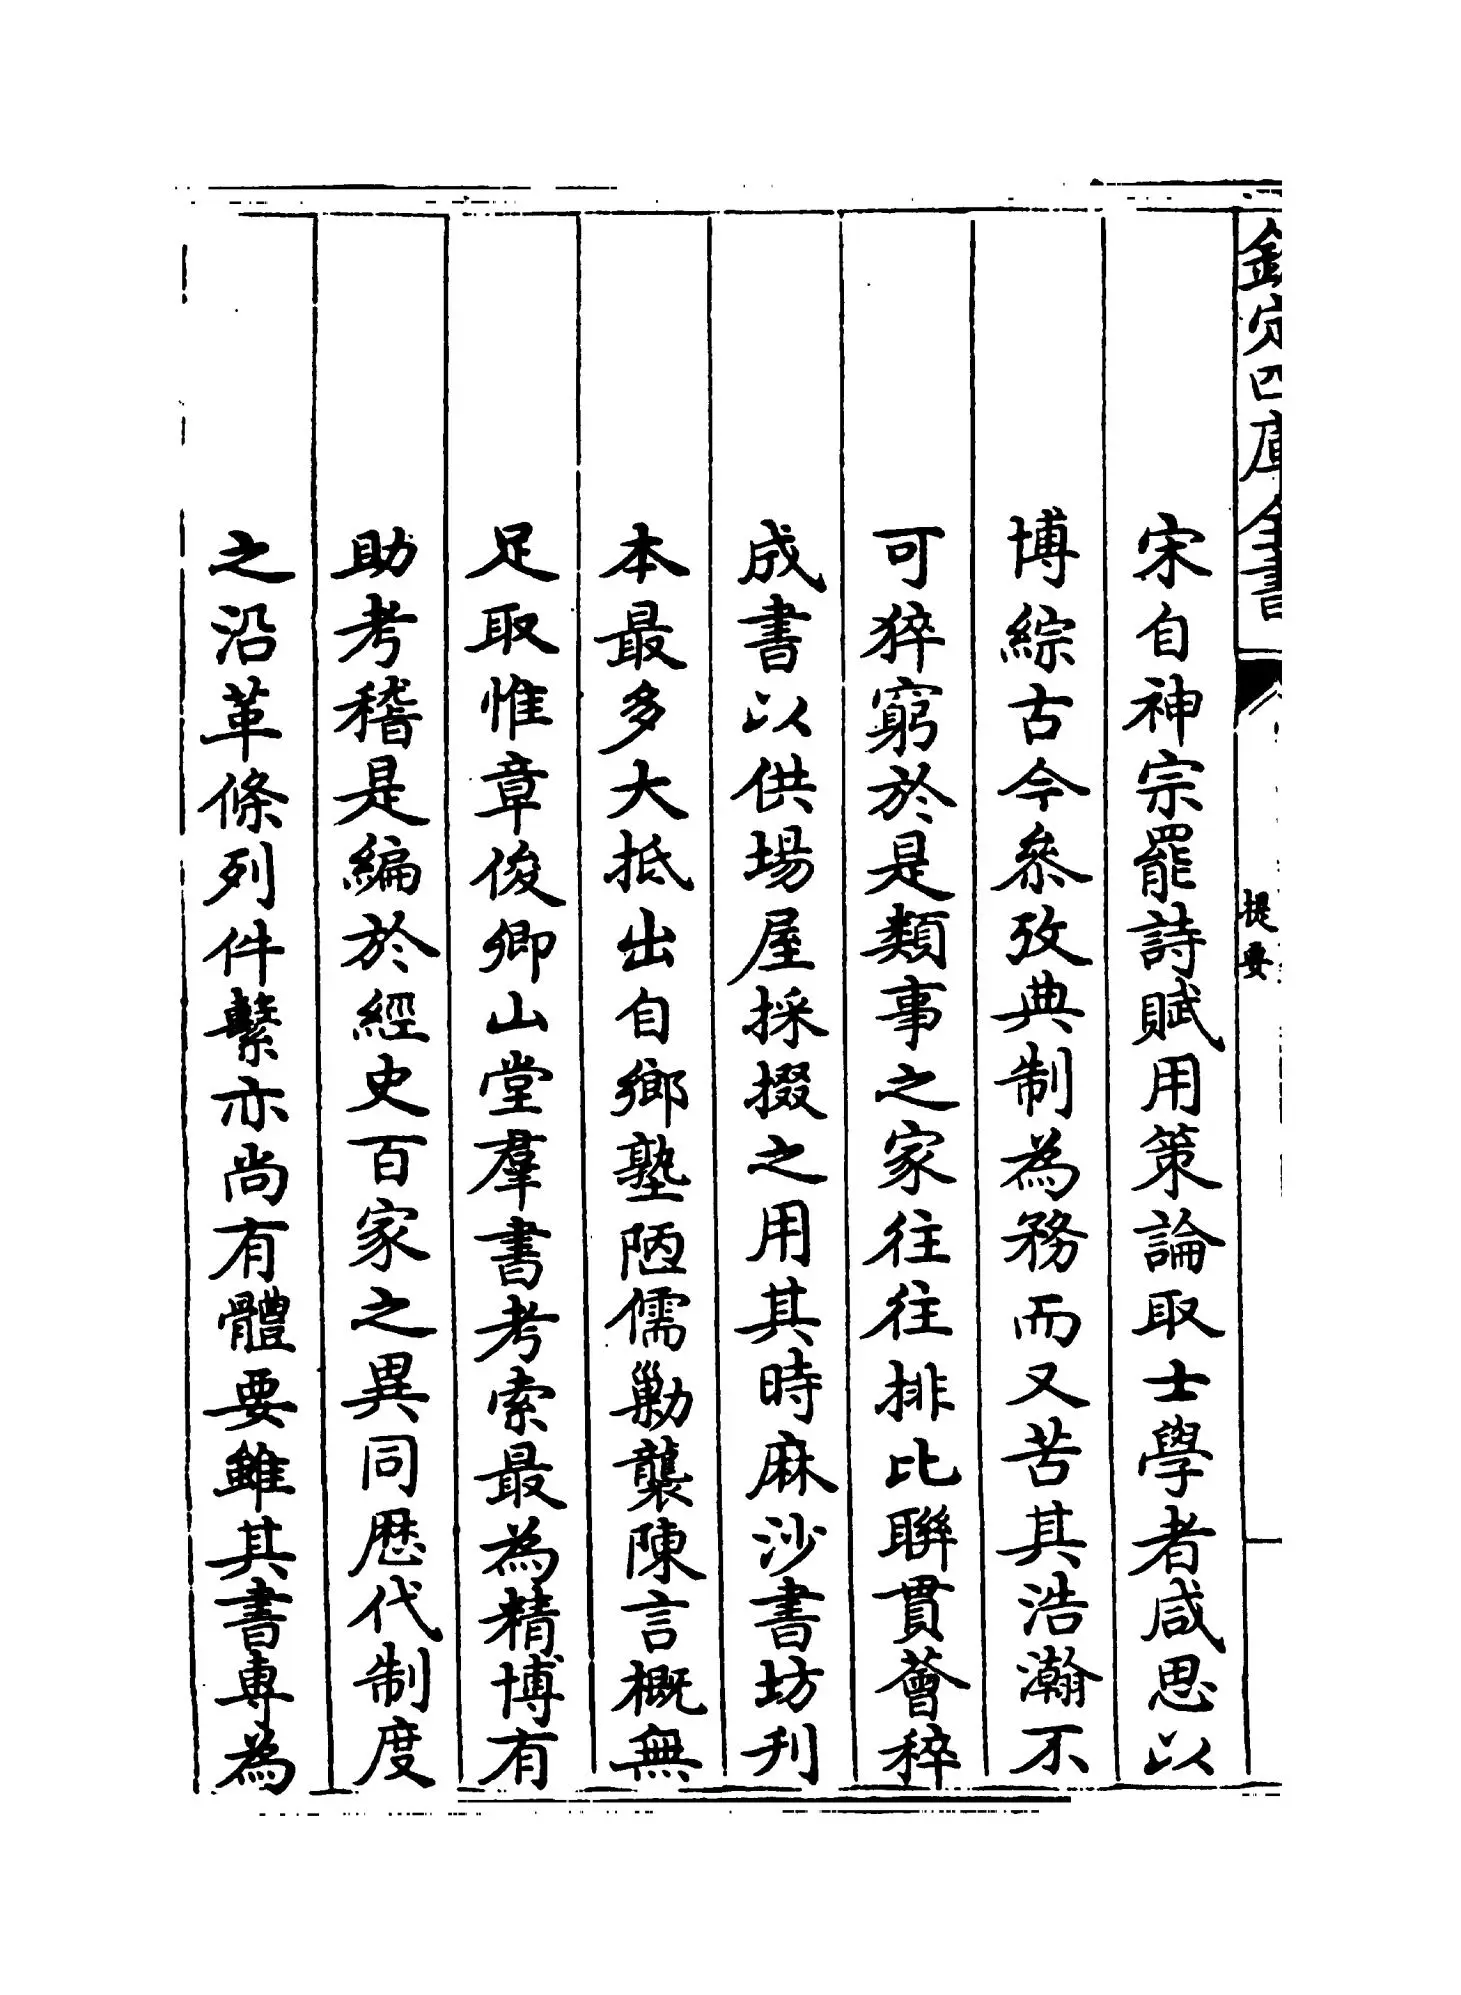 欽定四庫全書
提要
宋自神宗罷詩賦用策論取士學者咸思以
博綜古今叅攷典制為務而又苦其浩瀚不
可猝窮於是類事之家往往排比聯貫薈稡
成書以供場屋採掇之用其時麻沙書坊刋
本最多大抵出自鄉塾陋儒勦襲陳言概無
足取惟章俊卿山堂羣書考索最為精博有
助考稽是編於經史百家之異同歴代制度
之沿革條列件繫亦尚有體要雖其書専為